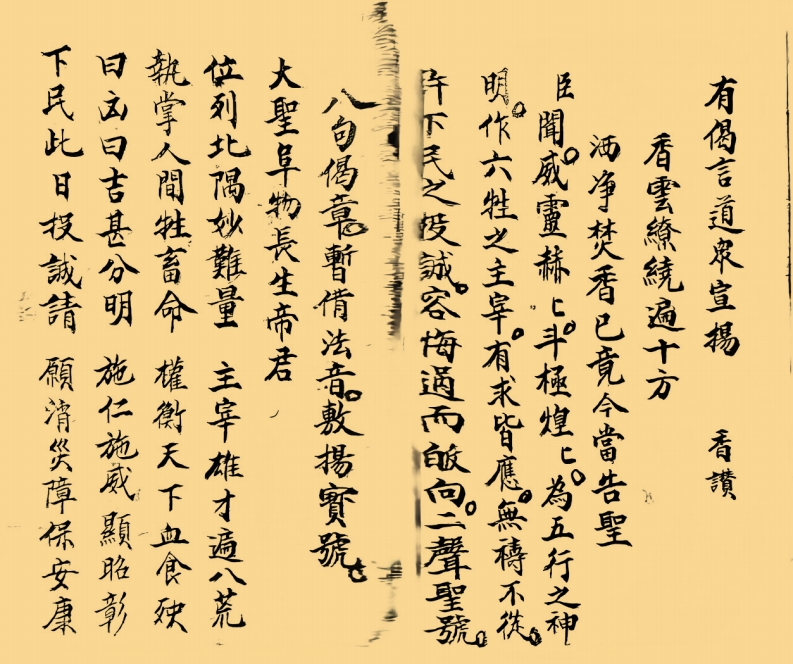 有偈言道眾宣揚　香讚
香雲繚繞遍十方
洒净焚香已竟今當告聖
臣聞。威靈赫〻。斗極煌〻。為五行之神
明。作六牲之主宰。有求皆應。無禱不從。
許下民之投誠。容悔過而皈向。二聲聖號。
八句偈章。暫借法音。敷揚寶號。
大聖阜物長生帝君
位列北隅妙難量　主宰雄才遍八荒
執掌人間牲畜命　權衡天下血食殃
曰凶曰吉甚分明　施仁施威顯昭彰
下民此日投誠請　願消災障保安康